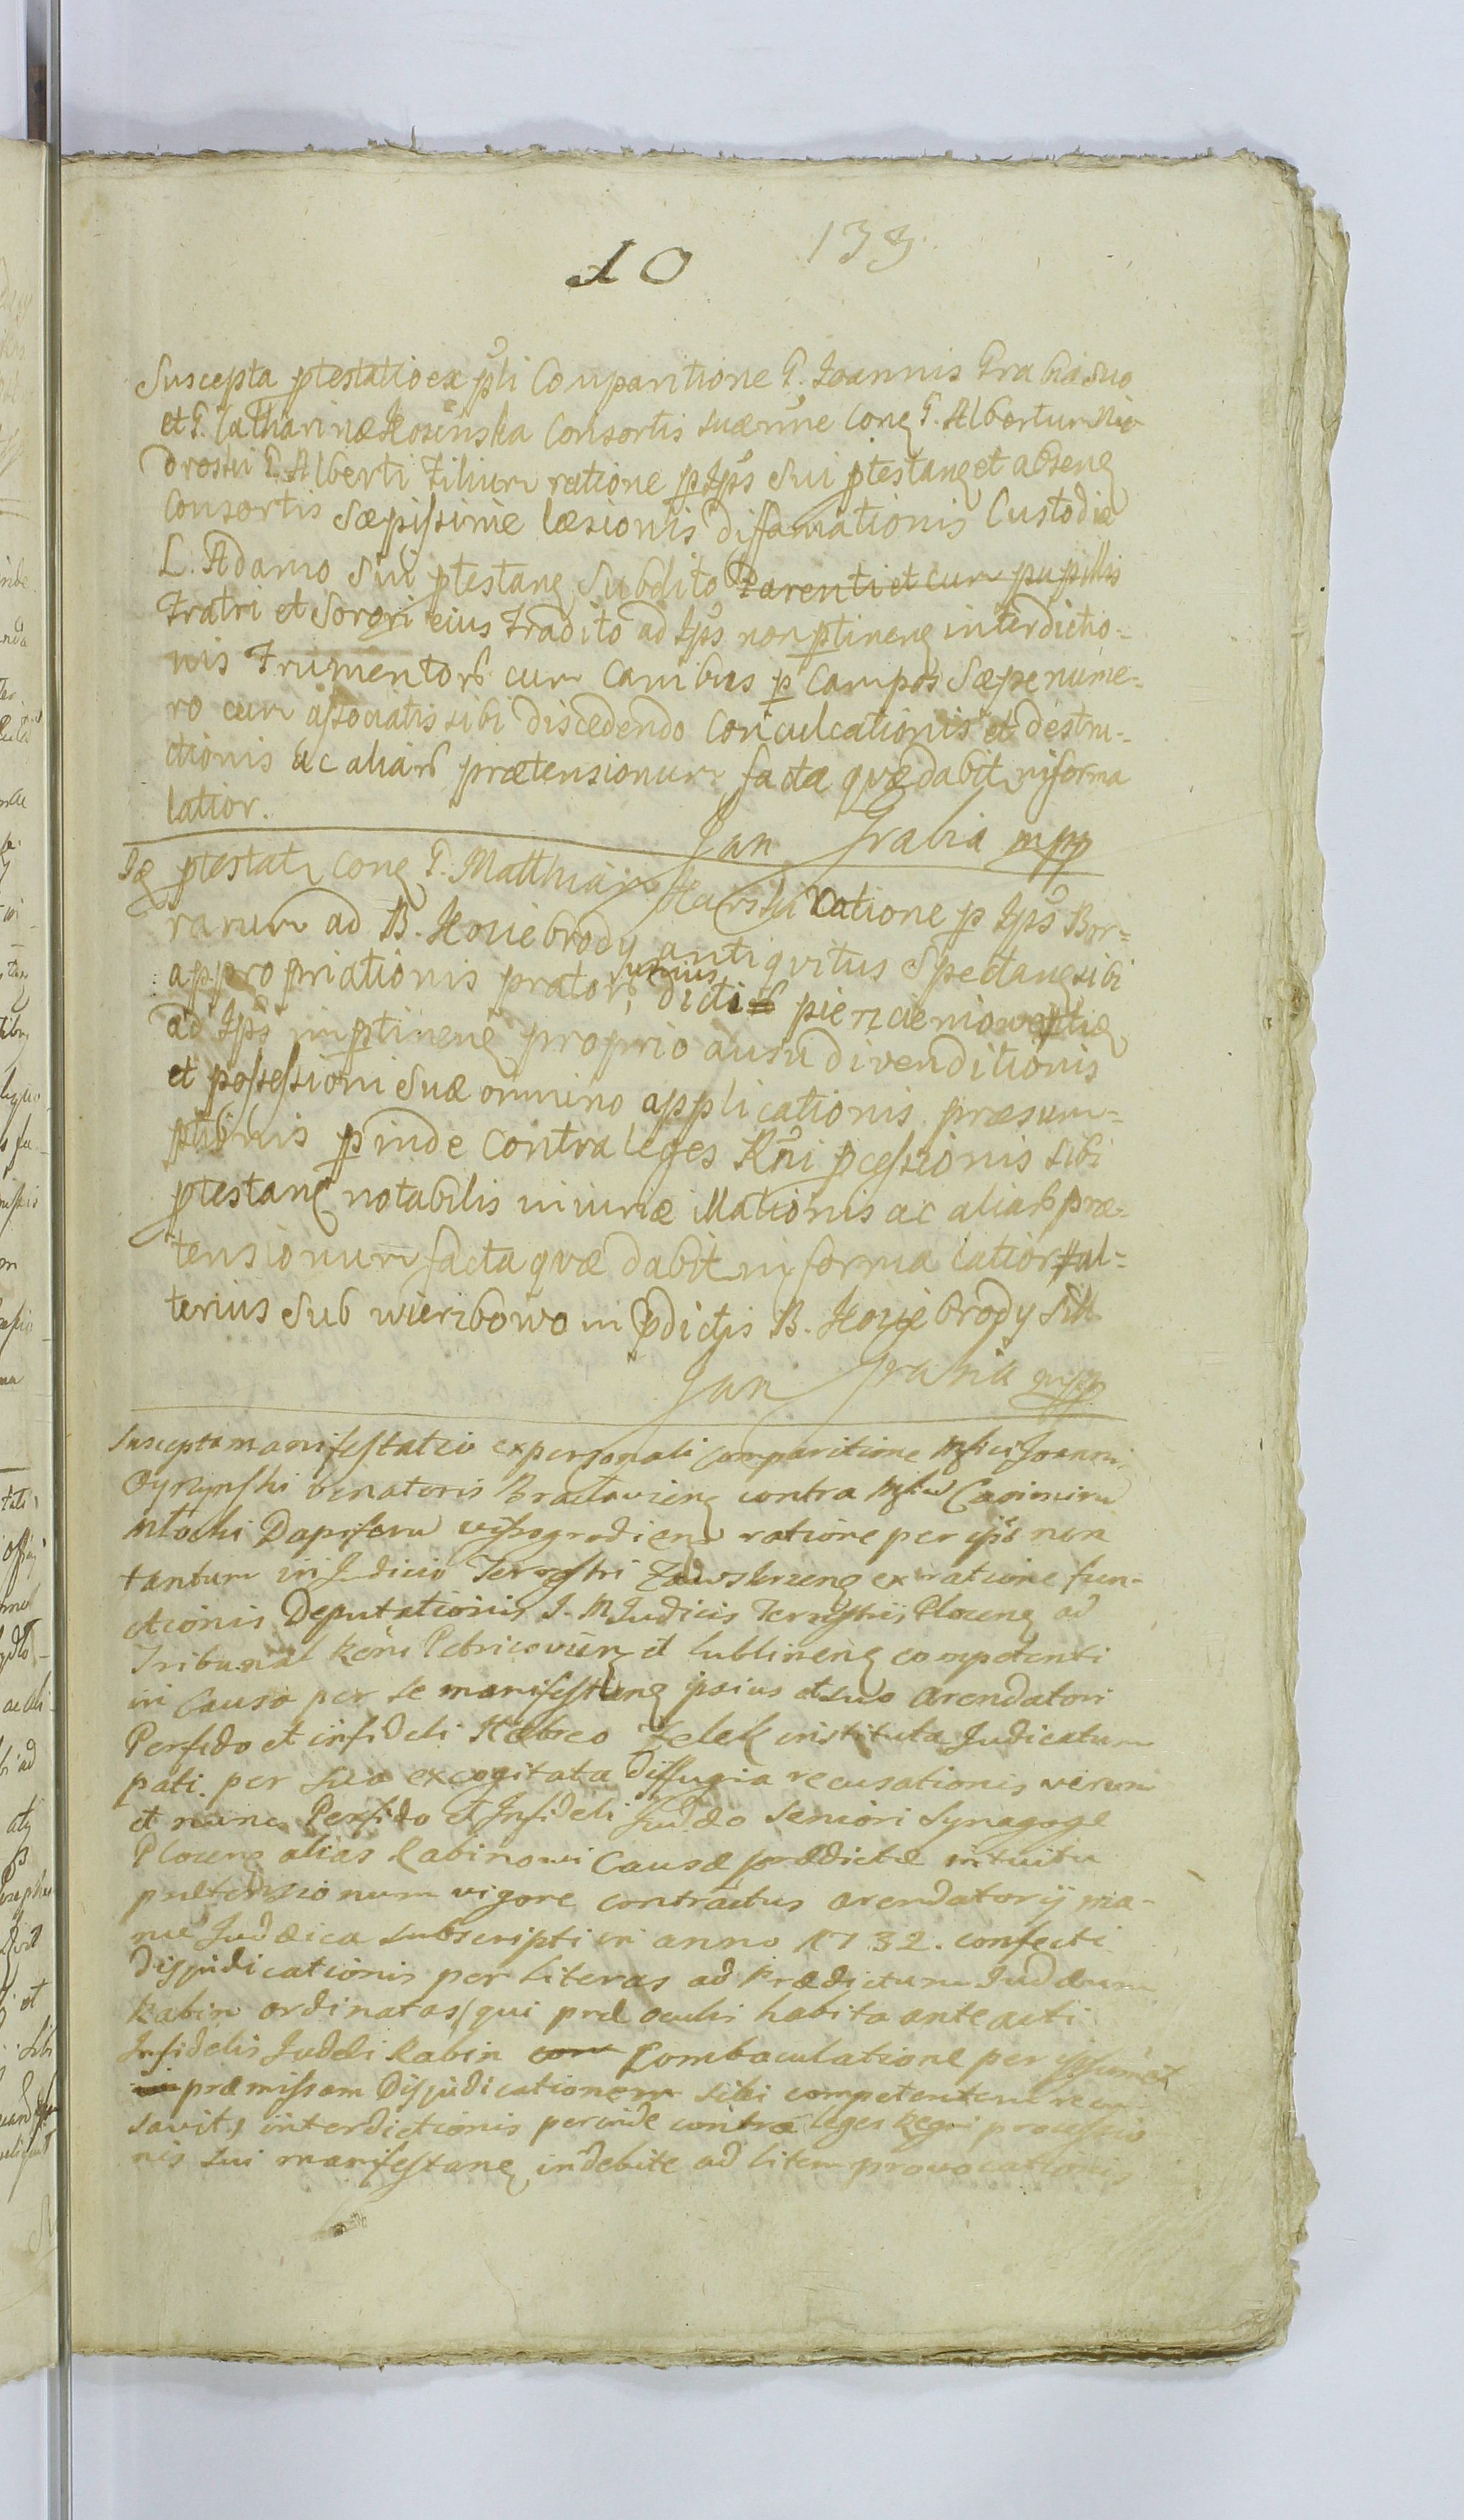 10 133.
Suscepta ptestatio ex pli Comparitione G. Joannis Grabia suo
et G. Catharinæ Kosinska Consortis suæ nne cong G. Albertum Nie
drosski G. Alberti Filium ratione p Ips sui ptestang et abseng
Consortis Sæpissime læsionis diffamationis Custodiæ
L. Adamo Sui ptestang Subdito Parenti et cum pupillis
Fratri et Sorori eius tradito ad Ips non ptineng interdictio=
nis Frumentorū cum Canibus p Campos Sæpenume=
ro cum assotiatis sibi discedendo Conculcationis et destru=
ctionis ac aliarū prætensionum facta quæ dabit in forma
latior.
Jan Grabia mpp
Id ptestatr cong G. Matthiam Karski Ratione p Ips Bor=
rarum ad B. Kouiebrody antiqvitus Spectang sibi
appropriationis pratorū unius dicti pierzaeniowe
ad Ips imptineng proprio ausu divenditionis
et possessioni Suæ omnino applicationis præsum=
ptionis pinde Contra leges Rni pcessionis sibi
ptestang notabilis iniuriæ illationis ac aliarū præ=
tensionum facta quæ dabit in forma latior al=
terius Sub wierzbowo in pdictis B. Kouiebrody
Jan Grabia mpp
Suscepta manifestatio ex personali comparitione Mfici Joanni
venatoris Braclavieng contra Mfcū Casimirū
Młocki Dapiferū vissogrodieng ratione per ips non
tantum in Judicio Terrestri Zawskrzeng ex ratione fun-
ctionis Deputationis I. M. Judicis Terrestris Ploceng ad
Tribunal Regni Petricovieng et Lublineng competenti
in Causa per se manifestang ipsius et suo Arendatori
Perfido et infideli Hæbreo Zelek instituta Judicatum
pati per sua excogitata diffugia recusationis verum
et nunc Perfido et Infideli Judæo Seniori Synagogæ
Ploceng alias Rabinowi Causæ prædictæ intuitu
prætensionum vigore contractus arendatorij ma-
nu Judæica subscripti in anno 1732. confecti
Disjudicationis per literas ad Prædictum Judæum
Rabin ordinatas (qui præ oculis habita ante acti
Infidelis Judæi Rabin Combaculatione per ipsumet
præmissam Disjudicationem sibi competentem recu-
savit) interdictionis perinde contra leges Regni processio
nis sui manifestang indebite ad litem provocationis